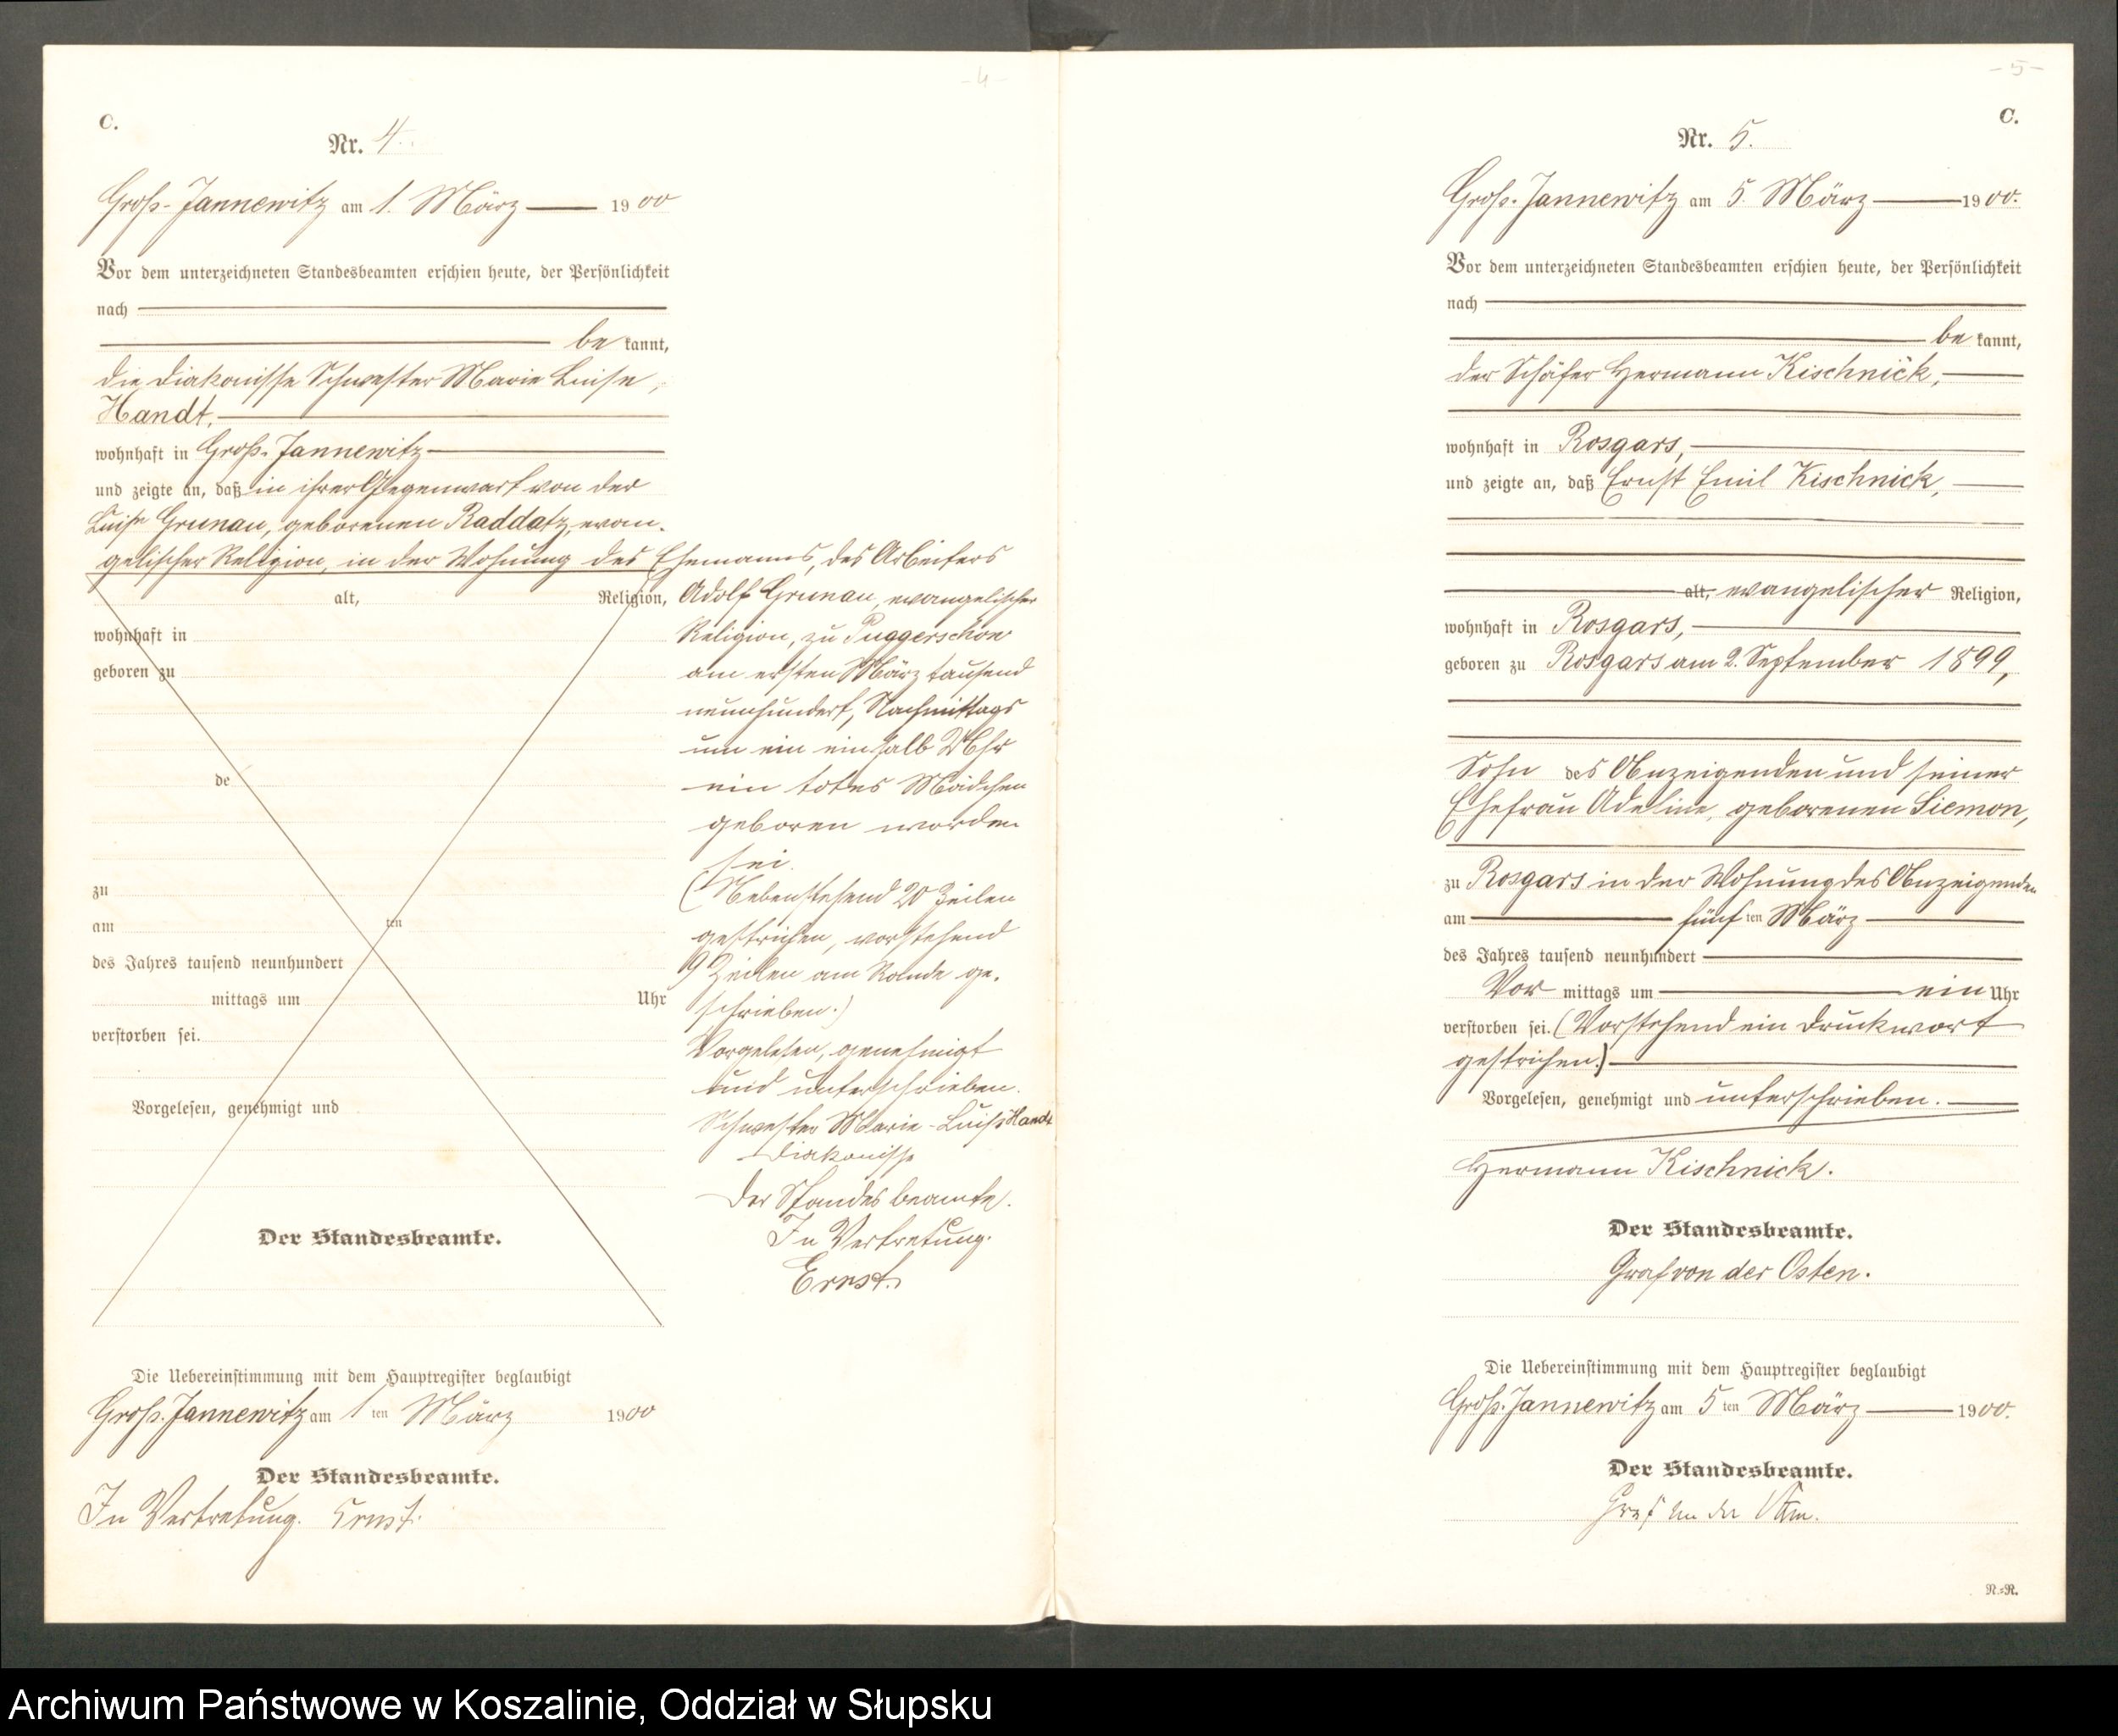 - 4 -
C.
Nr. 4.
Groß-Jannewitz am 1. März 1900
Vor dem unterzeichneten Standesbeamten erschien heute, der Persönlichkeit
nach
be kannt,
die Diakonisse Schwester Marie Luise,
Handt,
wohnhaft in Groß-Jannewitz
und zeigte an, daß in ihrer Gegenwart von der
Luise Grunau, geborenen Raddatz, evan-
gelischer Religion, in der Wohnung des Ehemanns, des Arbeiters
Adolf Grunau, evangelischer
Religion, zu Puggerschow
am ersten März tausend
neunhundert, Nachmittags
um ein einhalb Uhr
ein totes Mädchen
geboren worden
sei.
(Nebenstehend 20 Zeilen
gestrichen, vorstehend
9 Zeilen am Rande ge-
schrieben.)
Vorgelesen, genehmigt
und unterschrieben.
Schwester Marie-Luise Handt
Diakonisse
Der Standesbeamte.
In Vertretung.
Ernst.
alt, Religion,
wohnhaft in
geboren zu
de
zu
am ten
des Jahres tausend neunhundert
mittags um Uhr
verstorben sei.
Vorgelesen, genehmigt und
Der Standesbeamte.
Die Uebereinstimmung mit dem Hauptregister beglaubigt
Groß-Jannewitz am 1 ten März 1900
Der Standesbeamte.
In Vertretung. Ernst.
- 5 -
C.
Nr. 5.
Groß-Jannewitz am 5. März 1900.
Vor dem unterzeichneten Standesbeamten erschien heute, der Persönlichkeit
nach
be kannt,
der Schäfer Hermann Kischnick,
wohnhaft in Rosgars,
und zeigte an, daß Ernst Emil Kischnick,
alt, evangelischer Religion,
wohnhaft in Rosgars,
geboren zu Rosgars am 2. September 1899,
Sohn des Anzeigenden und seiner
Ehefrau Adeline, geborenen Siemon,
zu Rosgars in der Wohnung des Anzeigenden
am fünf ten März
des Jahres tausend neunhundert
Vor mittags um ein Uhr
verstorben sei. (Vorstehend ein Druckwort
gestrichen.)
Vorgelesen, genehmigt und unterschrieben.
Hermann Kischnick.
Der Standesbeamte.
Graf von der Osten.
Die Uebereinstimmung mit dem Hauptregister beglaubigt
Groß-Jannewitz am 5 ten März 1900.
Der Standesbeamte.
Graf von der Osten.
N.=R.
Archiwum Państwowe w Koszalinie, Oddział w Słupsku